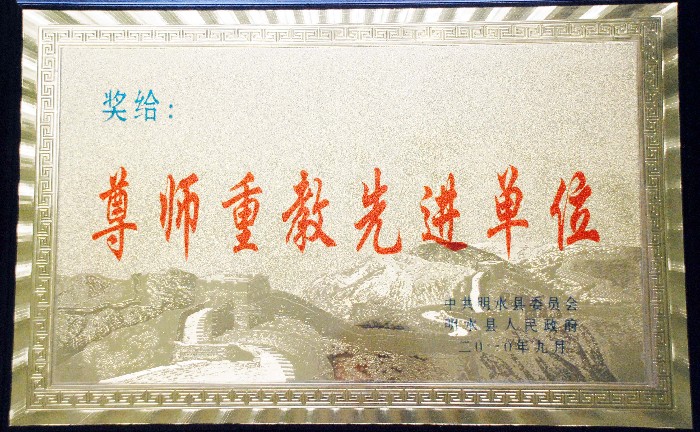 奖给：
尊师重教先进单位
中共明水县委员会
明水县人民政府
二〇一〇年九月